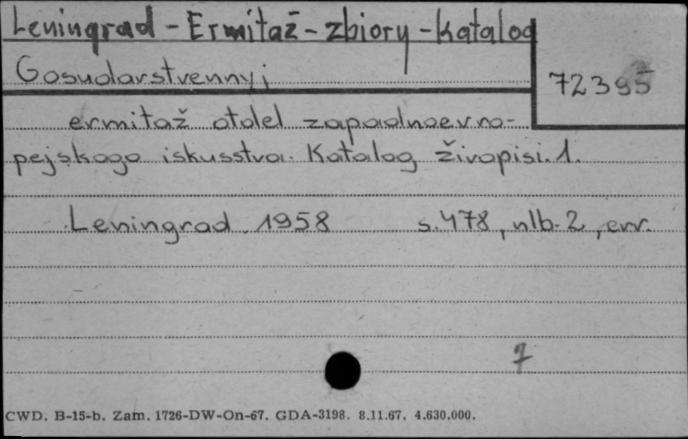 Leningrad - Ermitaž - zbiory - katalog
Gosudarstvennyj
72395
ermitaž otdel zapadnoevro-
pejskogo iskusstva. Katalog živopisi. 1.
Leningrad 1958 s. 478, nlb. 2, err.
7
CWD. B-15-b. Zam. 1726-DW-On-67. GDA-3198. 8.11.67. 4.630.000.